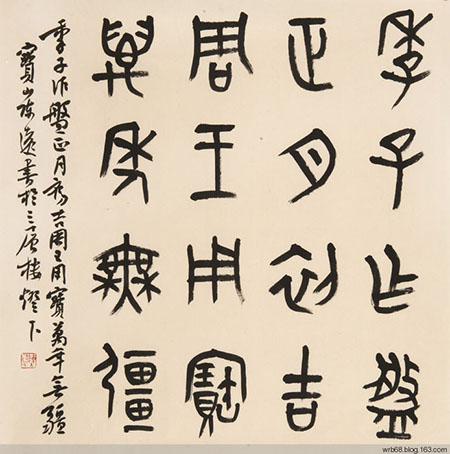 季子乍盤
正月初吉
周王用寶
萬年無彊
季子作盤正月初吉周王用寶萬年無疆
寶山陳書於三層樓燈下
wrb68.blog.163.com